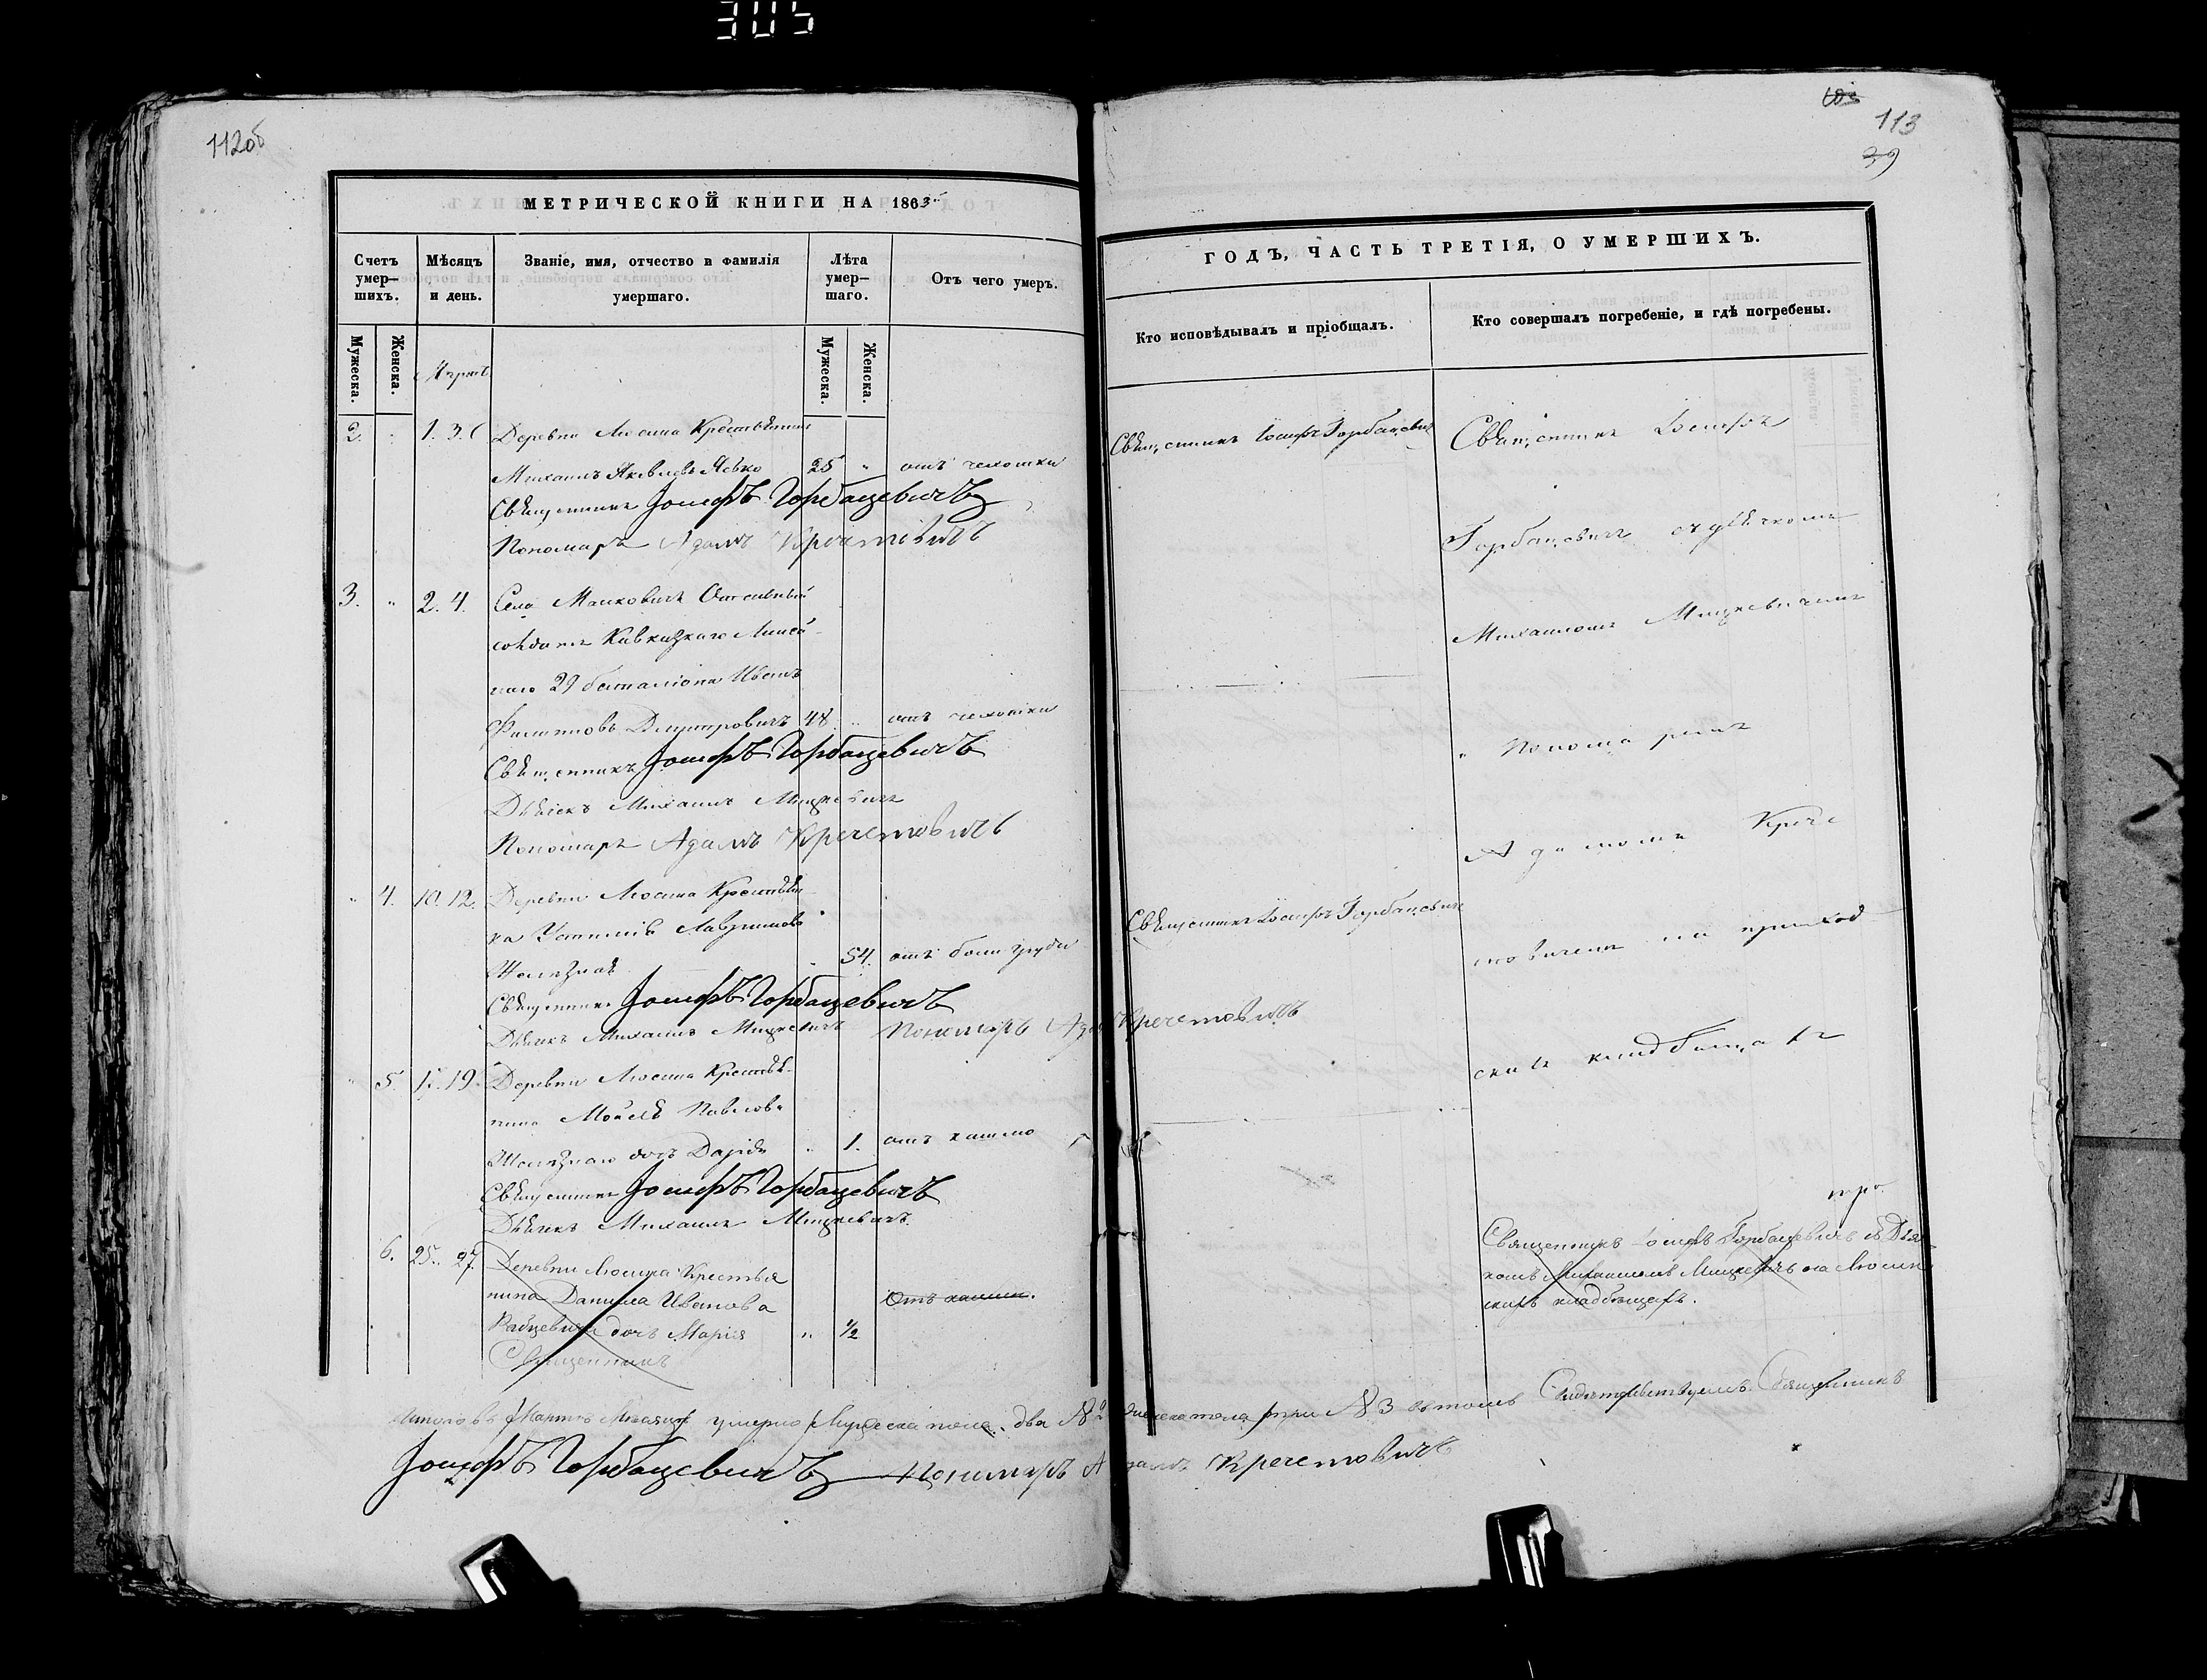 305
112об
МЕТРИЧЕСКОЙ КНИГИ НА 1863
Счетъ умер—шихъ.
Мѣсяцъ и день.
Званіе, имя, отчество и фамилія умершаго.
Лѣта умер—шаго.
Отъ чего умеръ.
Мужеска.
Женска.
Мартъ
Мужеска.
Женска.
2. 1. 3. Деревни Люсина Крестьянинъ
Михаилъ Яковлевъ 25 " отъ чехотки
Священникъ Іосифъ Горбацевичъ
Пономарь Адамъ Кречетовичъ
3. " 2. 4. Села Отставный
солдатъ Кавказкаго Линей-
наго 29 баталіона Иванъ
Филиповъ Дмитровичъ 48 " отъ чехотки
Священникъ Іосифъ Горбацевичъ
Дьячекъ Михаилъ Мицкевичъ
Пономарь Адамъ Кречетовичъ
" 4. 10. 12. Деревни Люсина Крестьян-
ка Лавринова
54. отъ боли груди
Священникъ Іосифъ Горбацевичъ
Дьячекъ Михаилъ Мицкевичъ Пономарь Адамъ Кречетовичъ
" 5. 17. 19. Деревни Люсина Крестья-
нина Павлова
дочь Дарія " 1. отъ кашлю
Священникъ Іосифъ Горбацевичъ
Дьячекъ Михаилъ Мицкевичъ
6. 25. 27. Деревни Люсина Крестья
нина Данила Иванова
дочь Марія " 1/2 Отъ кашлю.
Священникъ
113
39
ГОДЪ, ЧАСТЬ ТРЕТІЯ, О УМЕРШИХЪ.
Кто исповѣдывалъ и пріобщалъ.
Кто совершалъ погребеніе, и гдѣ погребены.
Священникъ Іосифъ Горбацевичъ
Священникъ Іосифъ
Горбацевичъ съ дьячкомъ
Михаиломъ Мицкевичемъ
и Пономаремъ
Адамомъ Крече
товичемъ на приход
скихъ кладбищахъ
Священникъ Іосифъ Горбацевичъ
Священникъ Іосифъ Горбацевичъ съ Дья
комъ Михаиломъ Мицкевичъ на Люсин
скихъ кладбищахъ.
Итого въ Мартѣ Мѣсяцѣ умерло Мужеска пола два № 2 Женска пола три № 3 въ томъ Свидѣтельствуемъ Священникъ
Іосифъ Горбацевичъ Пономарь Адамъ Кречетовичъ